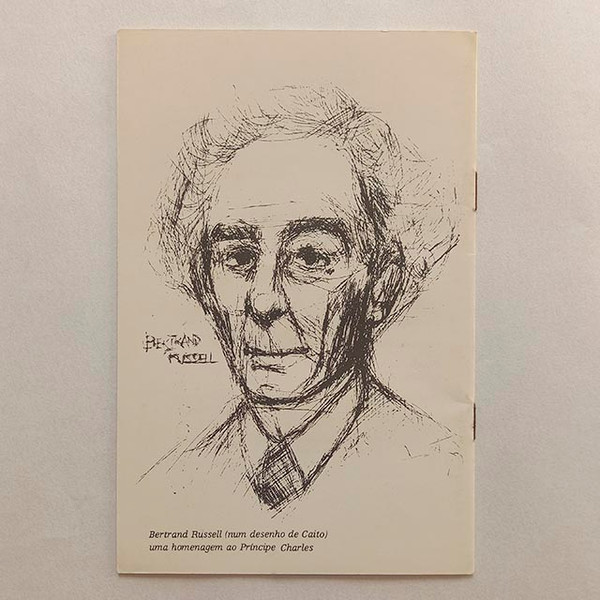 BERTRAND
RUSSELL
Bertrand Russell (num desenho de Caito)
uma homenagem ao Príncipe Charles